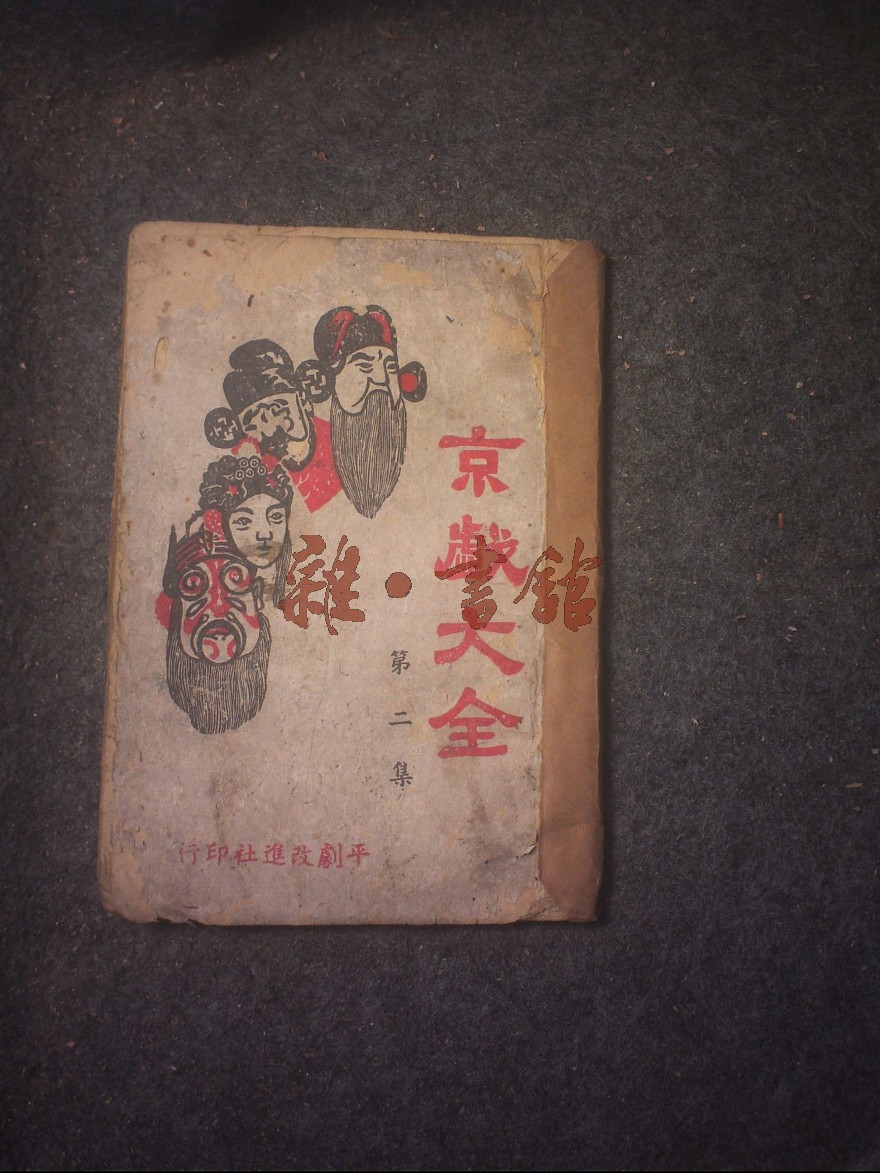 京戲大全
第二集
平劇改進社印行
雜·書館